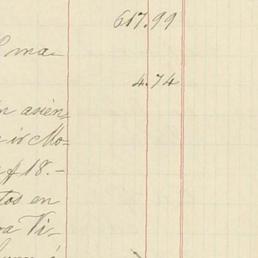 617.99
ma-
4.74
n asien-
ir Mo-
$ 18.-
tos en
a Vi-